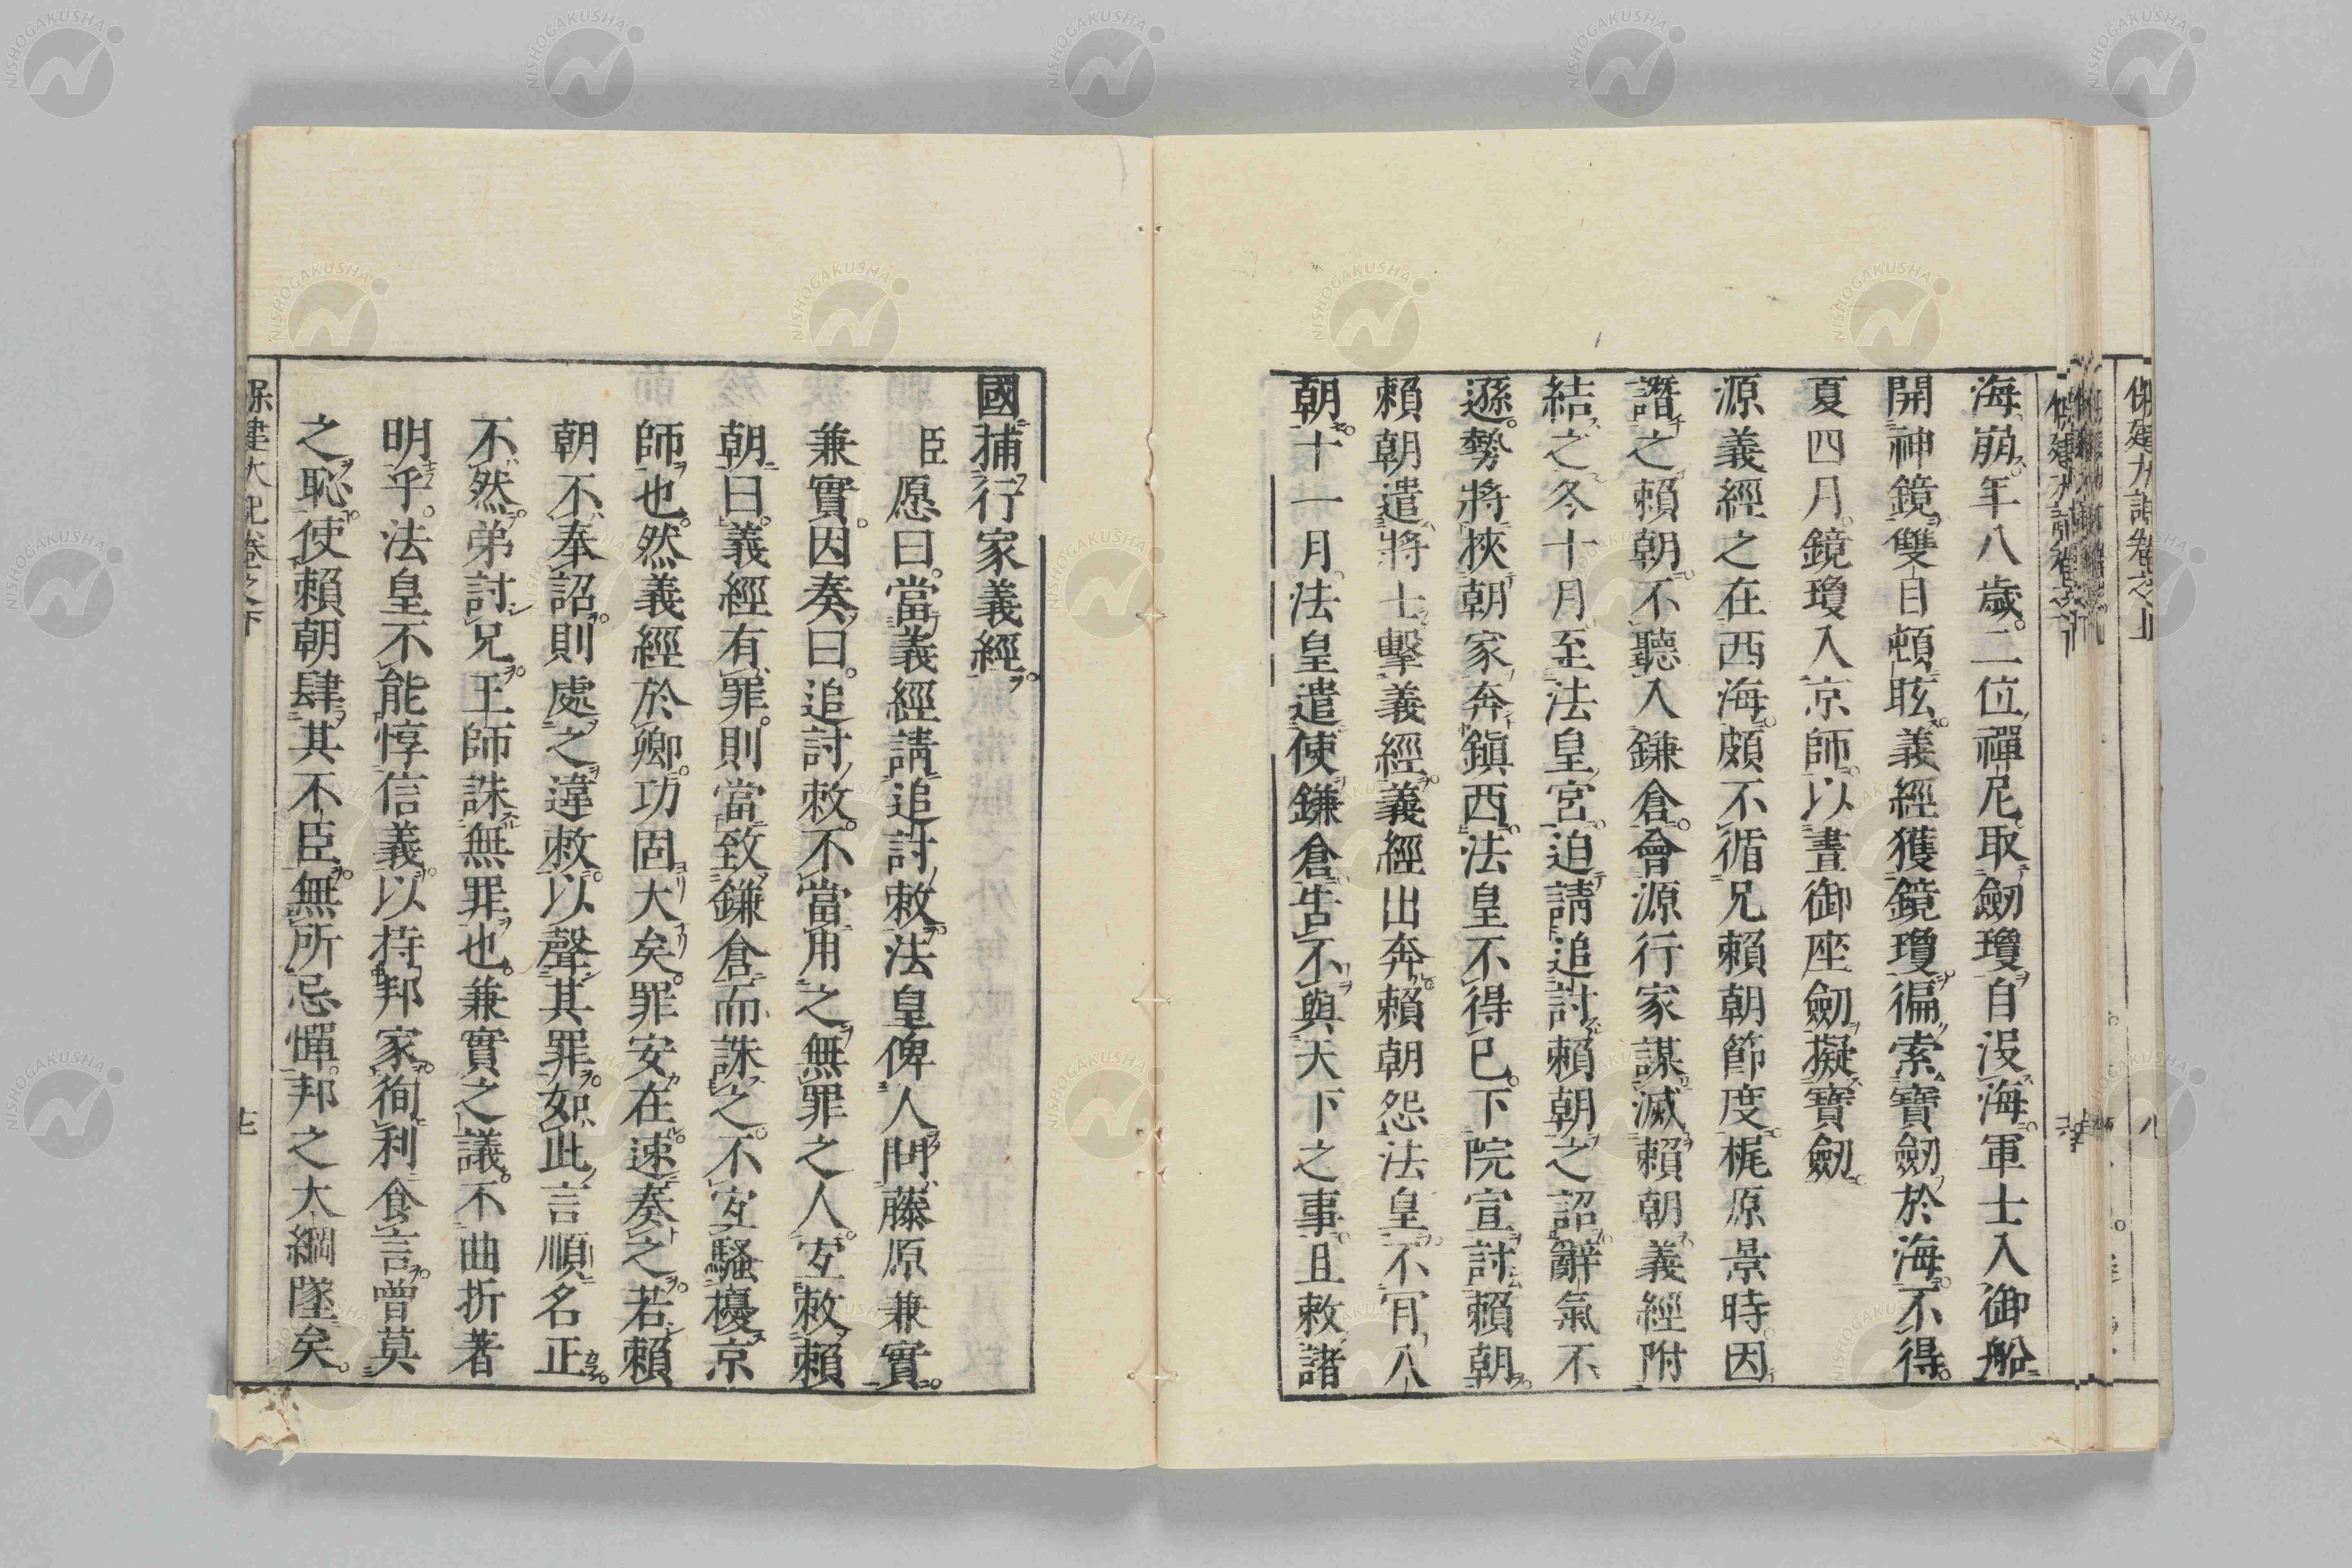 海崩。年八歲。二位禪尼取劒瓊自沒海。軍士入御船
開神鏡雙目頓眩。義經獲鏡瓊徧索寶劒於海。不得。
夏四月。鏡瓊入京師。以晝御座劒擬寶劒。
源義經之在西海。頗不循兄賴朝節度。梶原景時因
譖之。賴朝不聽入鎌倉。會源行家謀滅賴朝義經附
結之。冬十月。至法皇宮。迫請追討賴朝之詔。辭氣不
遜。勢將挾朝家奔鎮西。法皇不得已。下院宣討賴朝。
賴朝遣將士擊義經。義經出奔。賴朝怨法皇。不肎入
朝。十一月。法皇遣使鎌倉告不與天下之事。且敕諸
國捕行家義經。
臣愿曰。當義經請追討敕。法皇俾人問藤原兼實。
兼實。因奏曰。追討敕。不當用之無罪之人。宐敕賴
朝曰。義經有罪。則當致鎌倉而誅之。不宐騷擾京
師也。然義經於卿。功固大矣。罪安在。速奏之。若賴
朝不奉詔。則處之違敕。以聲其罪。如此言順名正。
不然。弟討兄。王師誅無罪也。兼實之議。不曲折著
明乎。法皇不能惇信義。以持邦家。徇利食言。曾莫
之恥。使賴朝肆其不臣。無所忌憚。邦之大綱墜矣。
保建大記卷之下
NISHOGAKUSHA